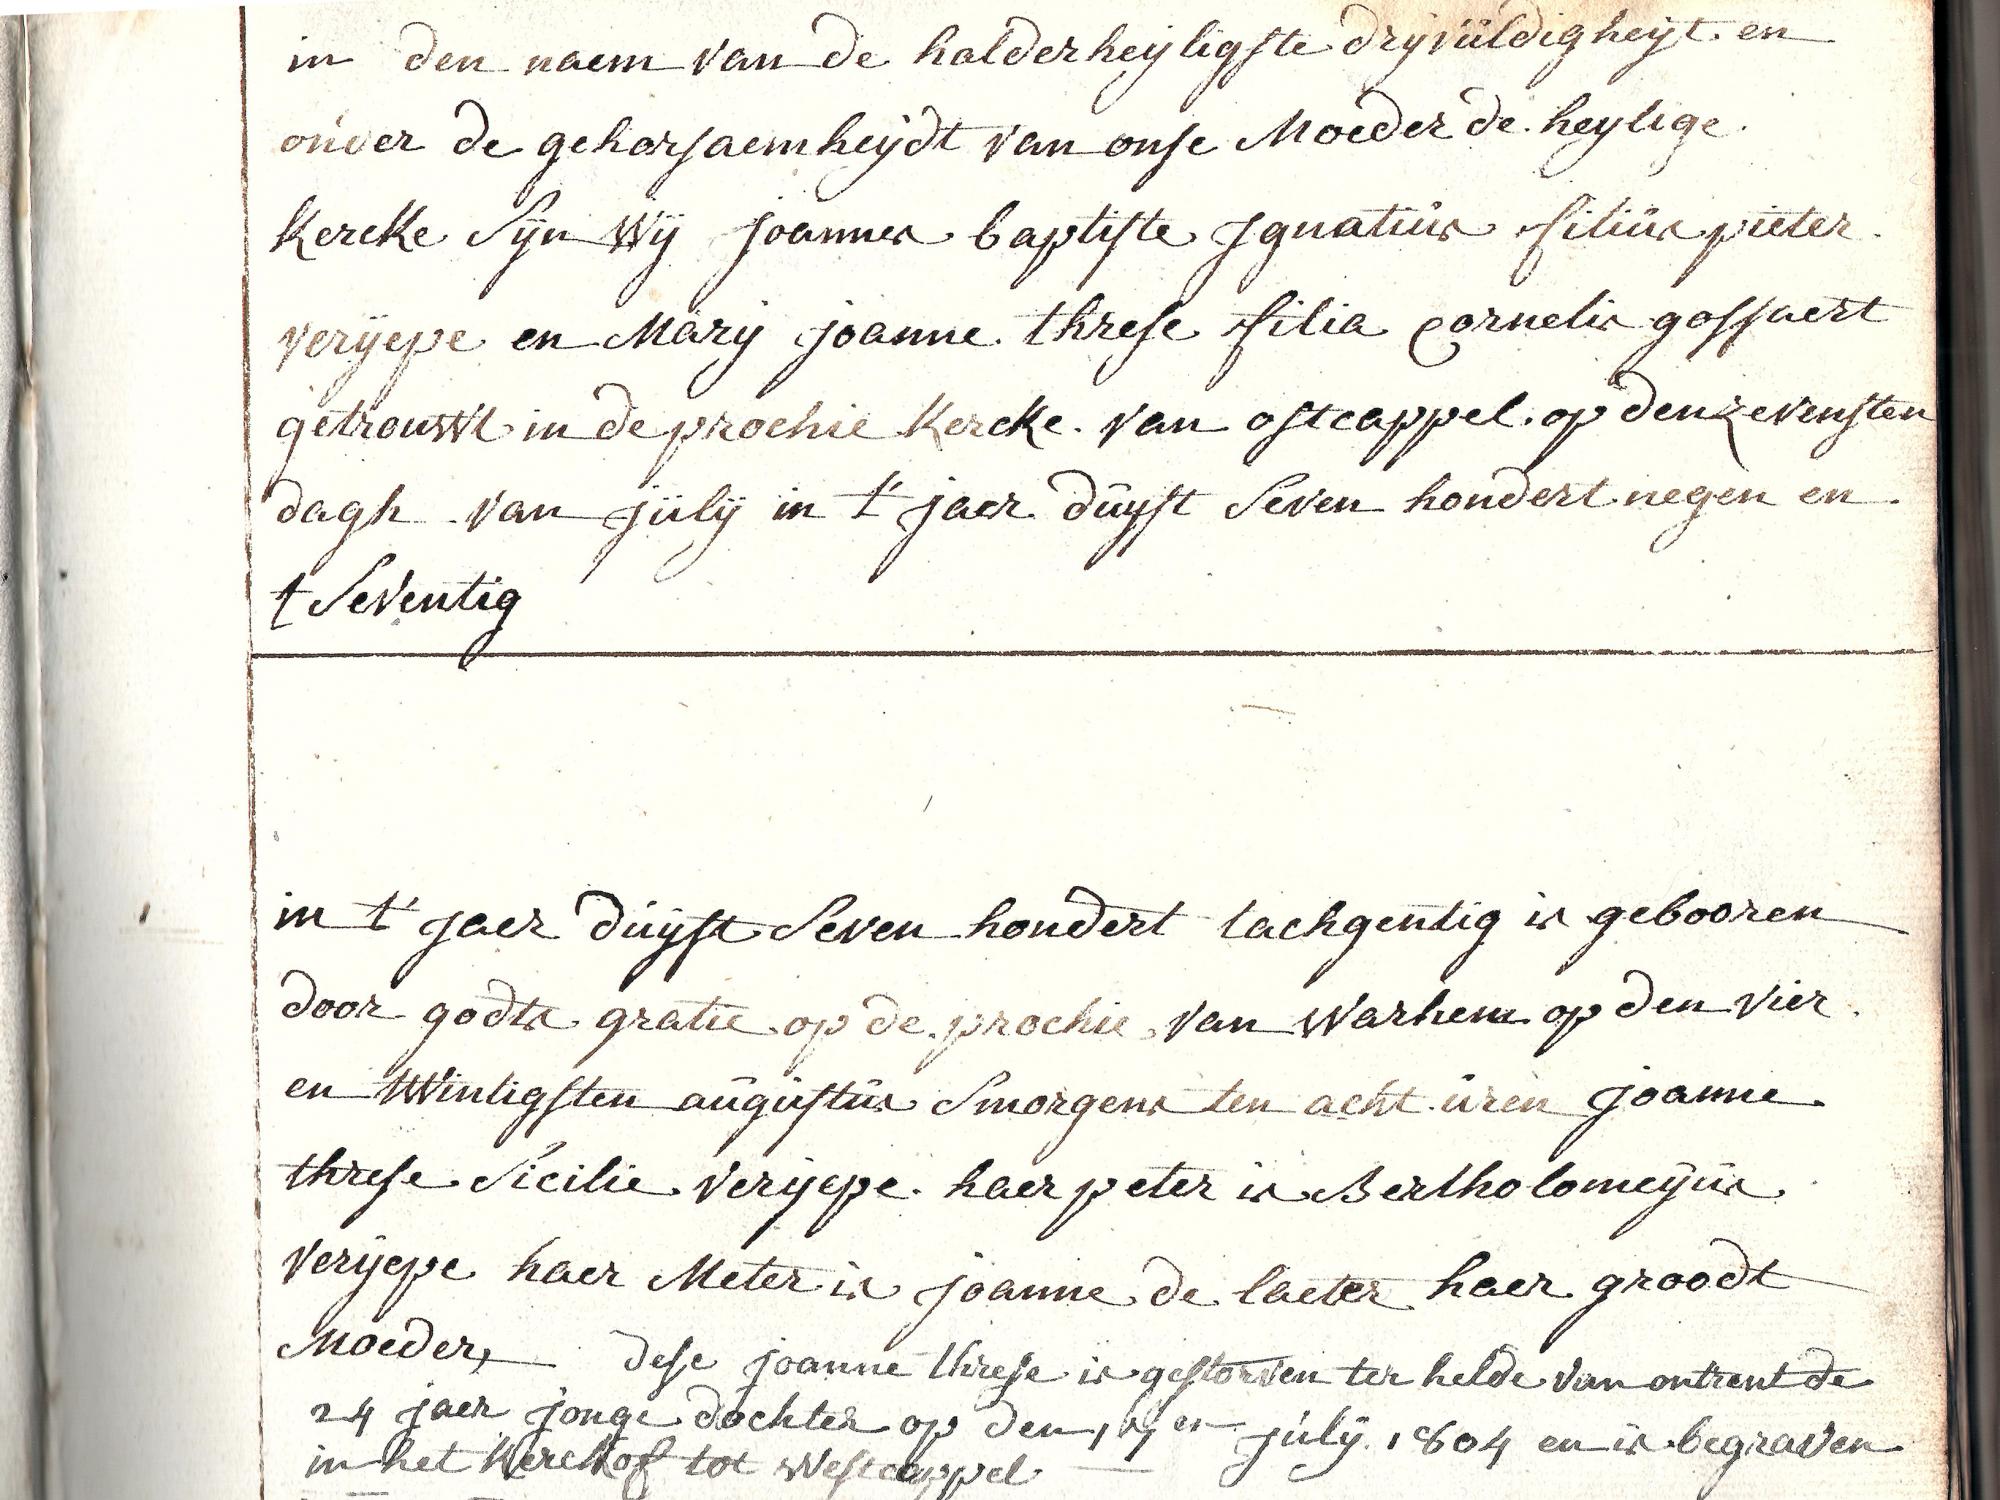 in den naem van de halderheyligste dryvuldigheyt en
onder de gehorsaemheydt van onse Moeder de heylige
kercke Syn wy joannes baptiste Ignatius filius pieter
veryepe en Mary joanne threse filia Cornelis gossaert
getrouwt in de prochie kercke van ostcappel op den zevensten
dagh van july in t' jaer duyst Seven hondert negen en
t Seventig
in t' jaer duyst Seven hondert tachgentig is gebooren
door godts gratie op de prochie van warhem op den vier
en twintigsten augustus Smorgens ten acht uren joanne
threse Sicilie veryepe haer peter is Bertholomeyus
veryepe haer Meter is joanne de laeter haer groodt
Moeder, dese joanne threse is gestorven ter helde van ontrent de
24 jaer jonge dochter op den en july 1804 en is begraven
in het kerckhof tot westcappel